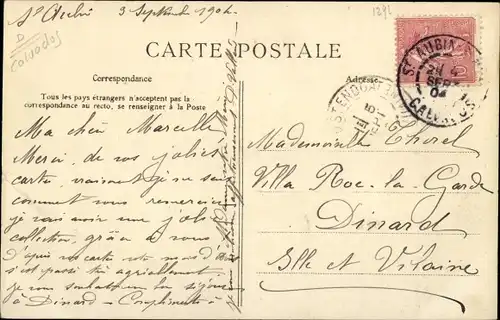 St Aubin 3 Septembre 1904
1291
D
Calvados
CARTE POSTALE
Correspondance
Adresse
Tous les pays étrangers n'acceptent pas la
correspondance au recto, se renseigner à la Poste
Ma chère Marcelle
Merci de vos jolies
cartes, vraiment je ne sais
comment vous remercier
je vais avoir une jolie
collection, grâce à vous
D'après vos cartes votre
s'est passé très agréablement
je vous souhaite un bon séjour
à Dinard - Compliments à
Mademoiselle Thorel
Villa Roc-la-Garde
Dinard
Ille et Vilaine
ST AUBIN
SEPT
04
CALVADOS